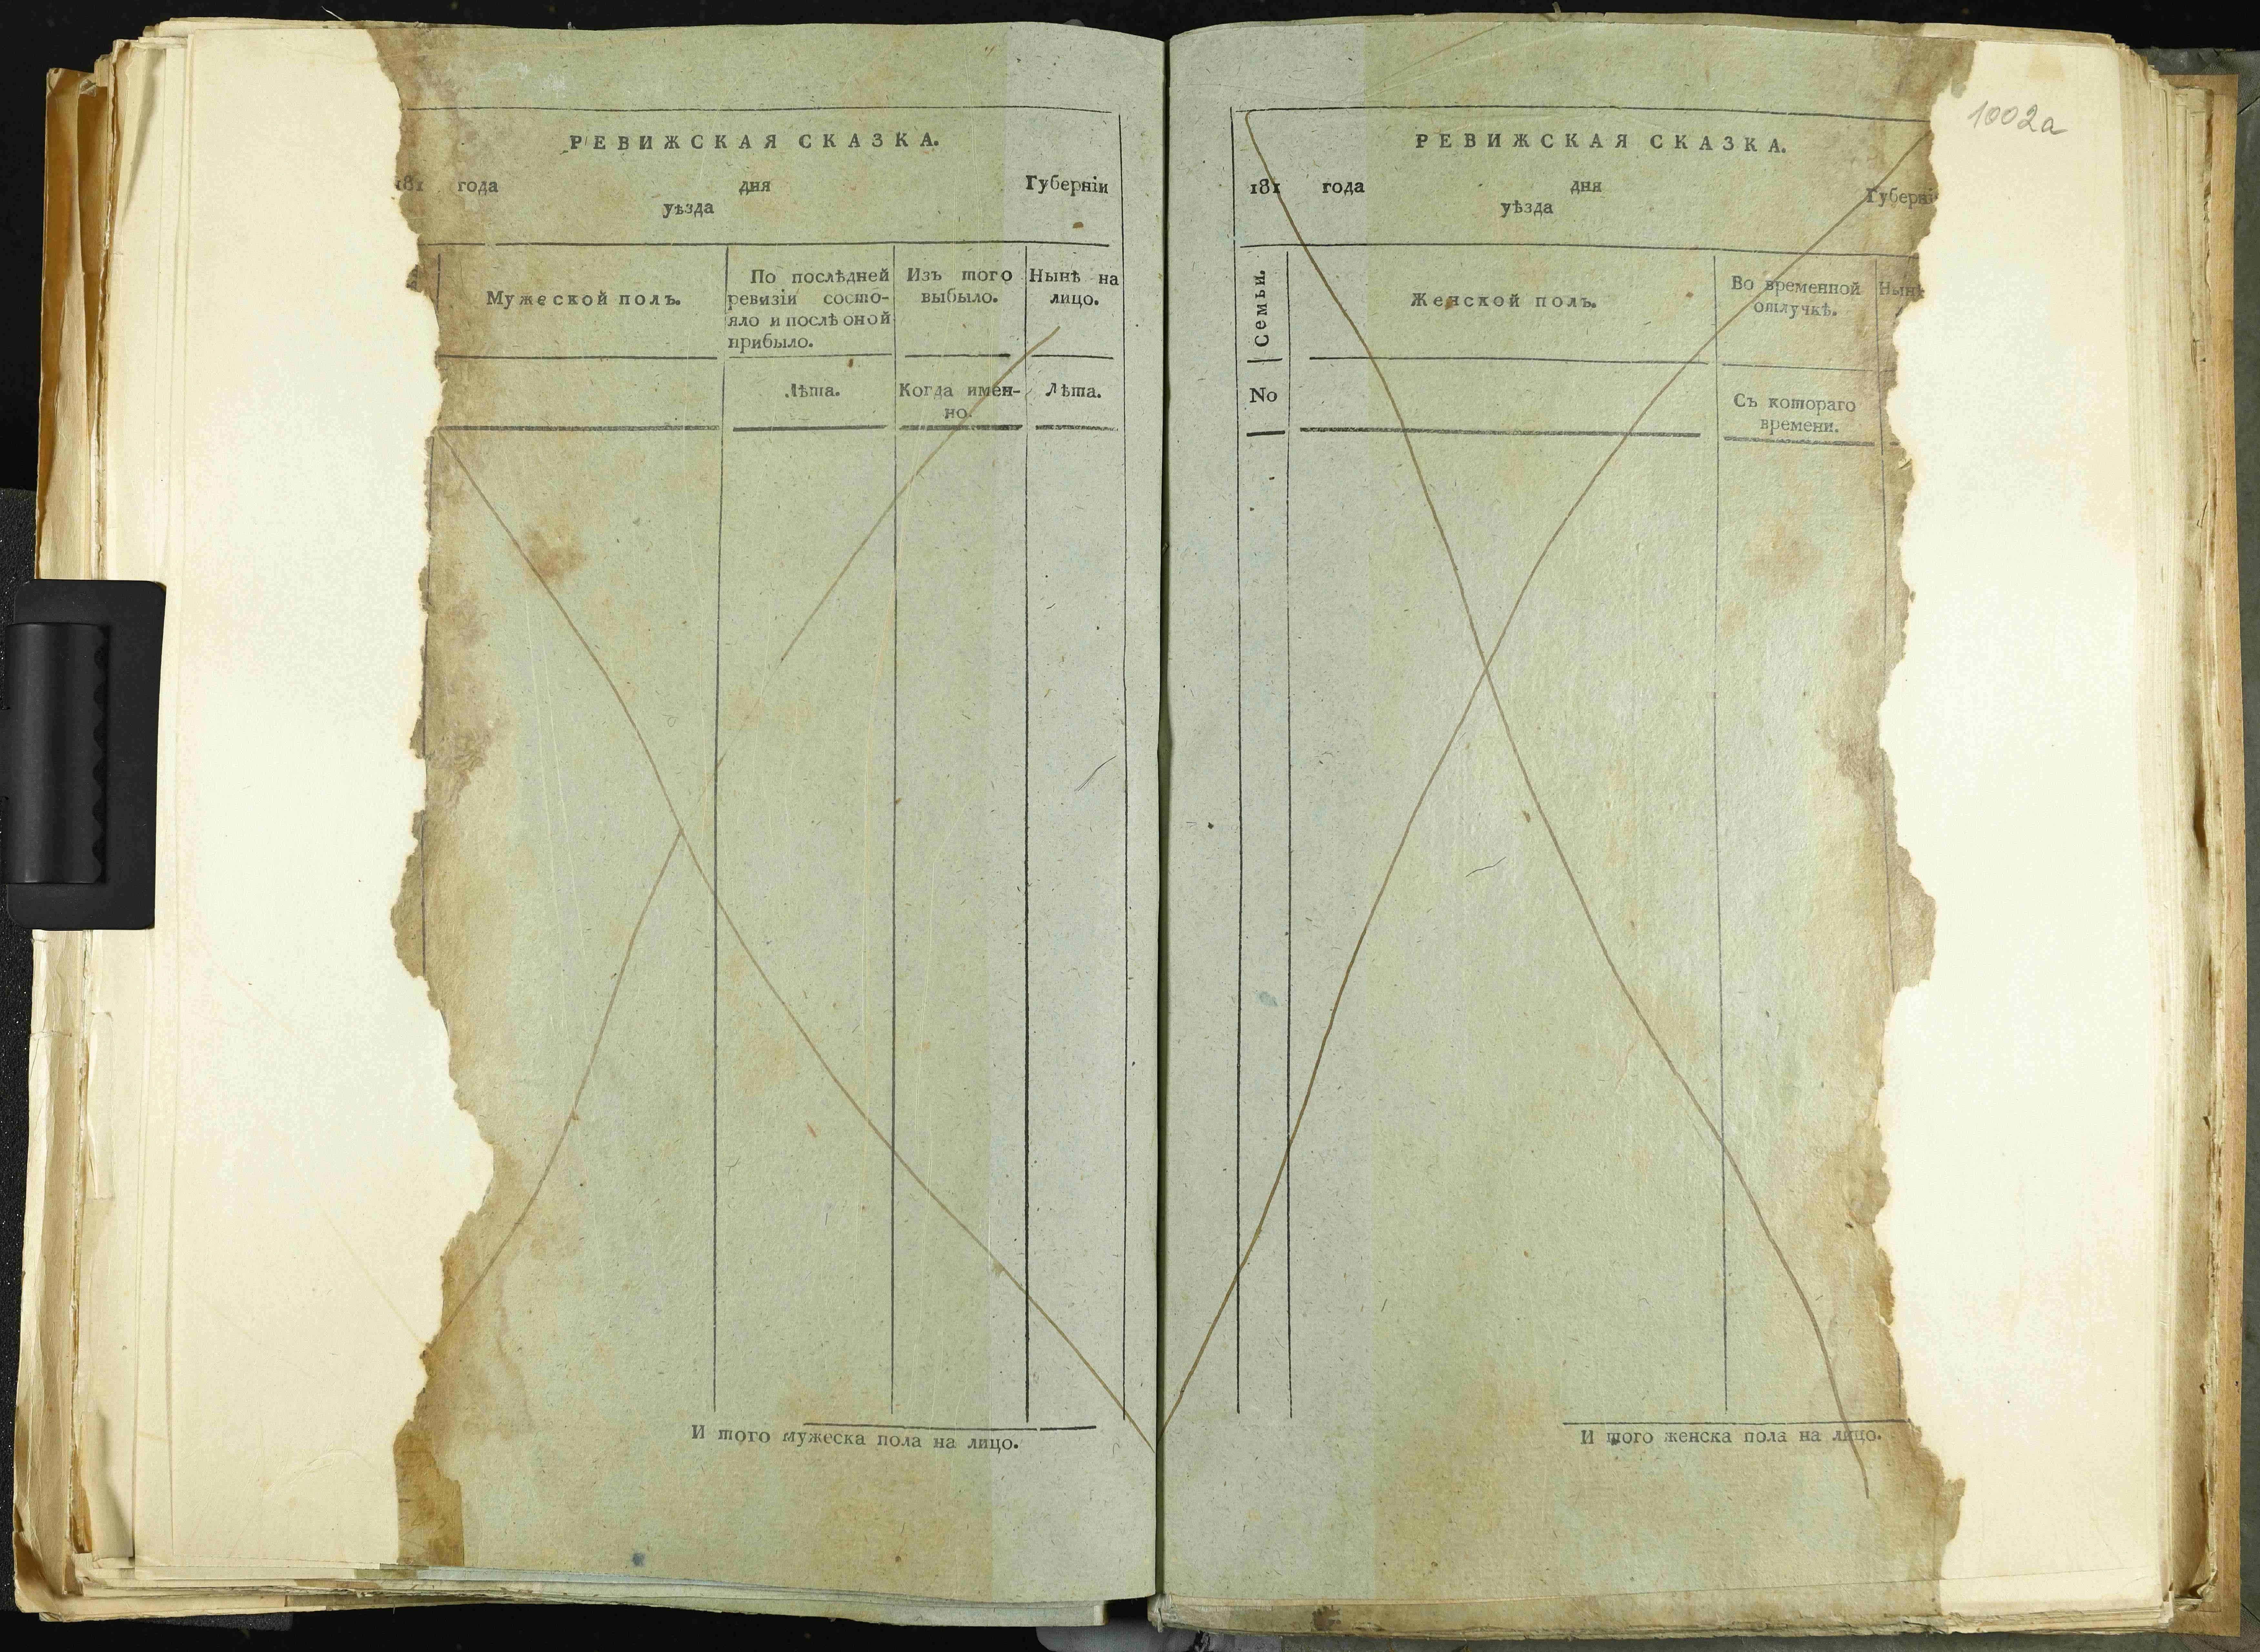 РЕВИЖСКАЯ СКАЗКА.
181 года дня Губерніи
уѣзда
Мужеской полъ.
По послѣдней
ревизіи состо-
яло и послѣ оной
прибыло.
Изъ того
выбыло.
Нынѣ на
лицо.
Лѣта.
Когда имен-
но.
Лѣта.
И того мужеска пола на лицо.
1002а
РЕВИЖСКАЯ СКАЗКА.
181 года дня Губерні
уѣзда
Семьи.
Женской полъ.
Во временной
отлучкѣ.
Нынѣ
No
Съ котораго
времени.
И того женска пола на лицо.